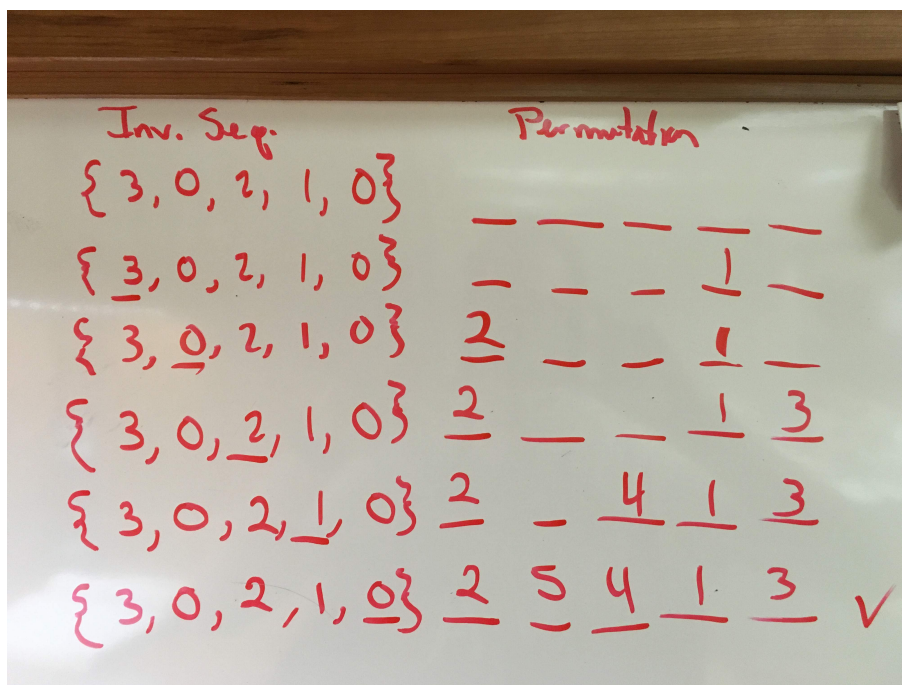 Inv. Seq. Permutation
{ 3, 0, 2, 1, 0} _ _ _ _ _
{ 3, 0, 2, 1, 0} _ _ _ 1 _
{ 3, 0, 2, 1, 0} 2 _ _ 1 _
{ 3, 0, 2, 1, 0} 2 _ _ 1 3
{ 3, 0, 2, 1, 0} 2 _ 4 1 3
{ 3, 0, 2, 1, 0} 2 5 4 1 3 ✓